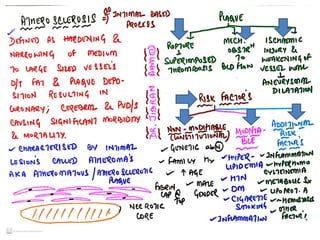 ATHEROSCLEROSIS
INTIMAL BASED
PROCESS
DEFINED AS HARDENING &
NARROWING OF MEDIUM
TO LARGE SIZED VESSELS
D/T FAT & PLAQUE DEPO-
SITION RESULTING IN
CORONARY; CEREBRAL & PVD/S
CAUSING SIGNIFICANT MORBIDITY
& MORTALITY.
✓ CHARACTERISED BY INTIMAL
LESIONS CALLED ATHEROMA'S
AKA ATHEROMATOUS / ATHEROSCLEROTIC
PLAQUE
FIBRIN
CAP @
TOP
NECROTIC
CORE
DR. IQRAN AHMED
PLAQUE
RUPTURE
SUPERIMPOSED
THROMBOSIS
MECH.
OBSTRN
TO
BLD FLOW
ISCHAEMIC
INJURY &
WEAKENING OF
VESSEL WALL
ANEURYSMAL
DILATATION
RISK FACTORS
NON-MODIFIABLE
(CONSTITUTIONAL)
✓ GENETIC
✓ FAMILY Hx
✓ ↑ AGE
✓ MALE
GENDER
MODIFIA-
BLE
✓ HYPER-
LIPIDEMIA
✓ HTN
✓ DM
✓ CIGARETTE
SMOKING
✓ INFLAMMATION
ADDITIONAL
RISK
FACTORS
✓ INFLAMMATION
✓ HYPERHOMO
CYSTEINEMIA
✓ METABOLIC Sx
✓ LIPOPROT. A
✓ HEMOSTASIS
✓ OTHER
FACTORS